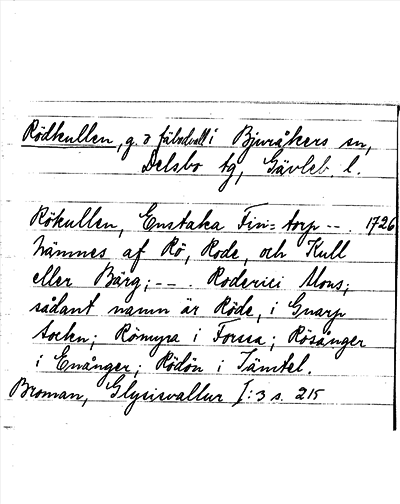 Rödkullen, g. o fäbodvall i Bjuråkers sn,
Delsbo tg, Gävleb l.
Rökullen, Enstaka Fin= torp -- . 1726
nämnes af Rö, Rode, och Kull
eller Bärg; -- . Roderici Mons;
sådant namn är Röde, i Gnarp
socken; Römyra i Forssa; Rösånger
i Enånger; Rödön i Jämtel.
Broman, Glysisvallur I:3 s. 215